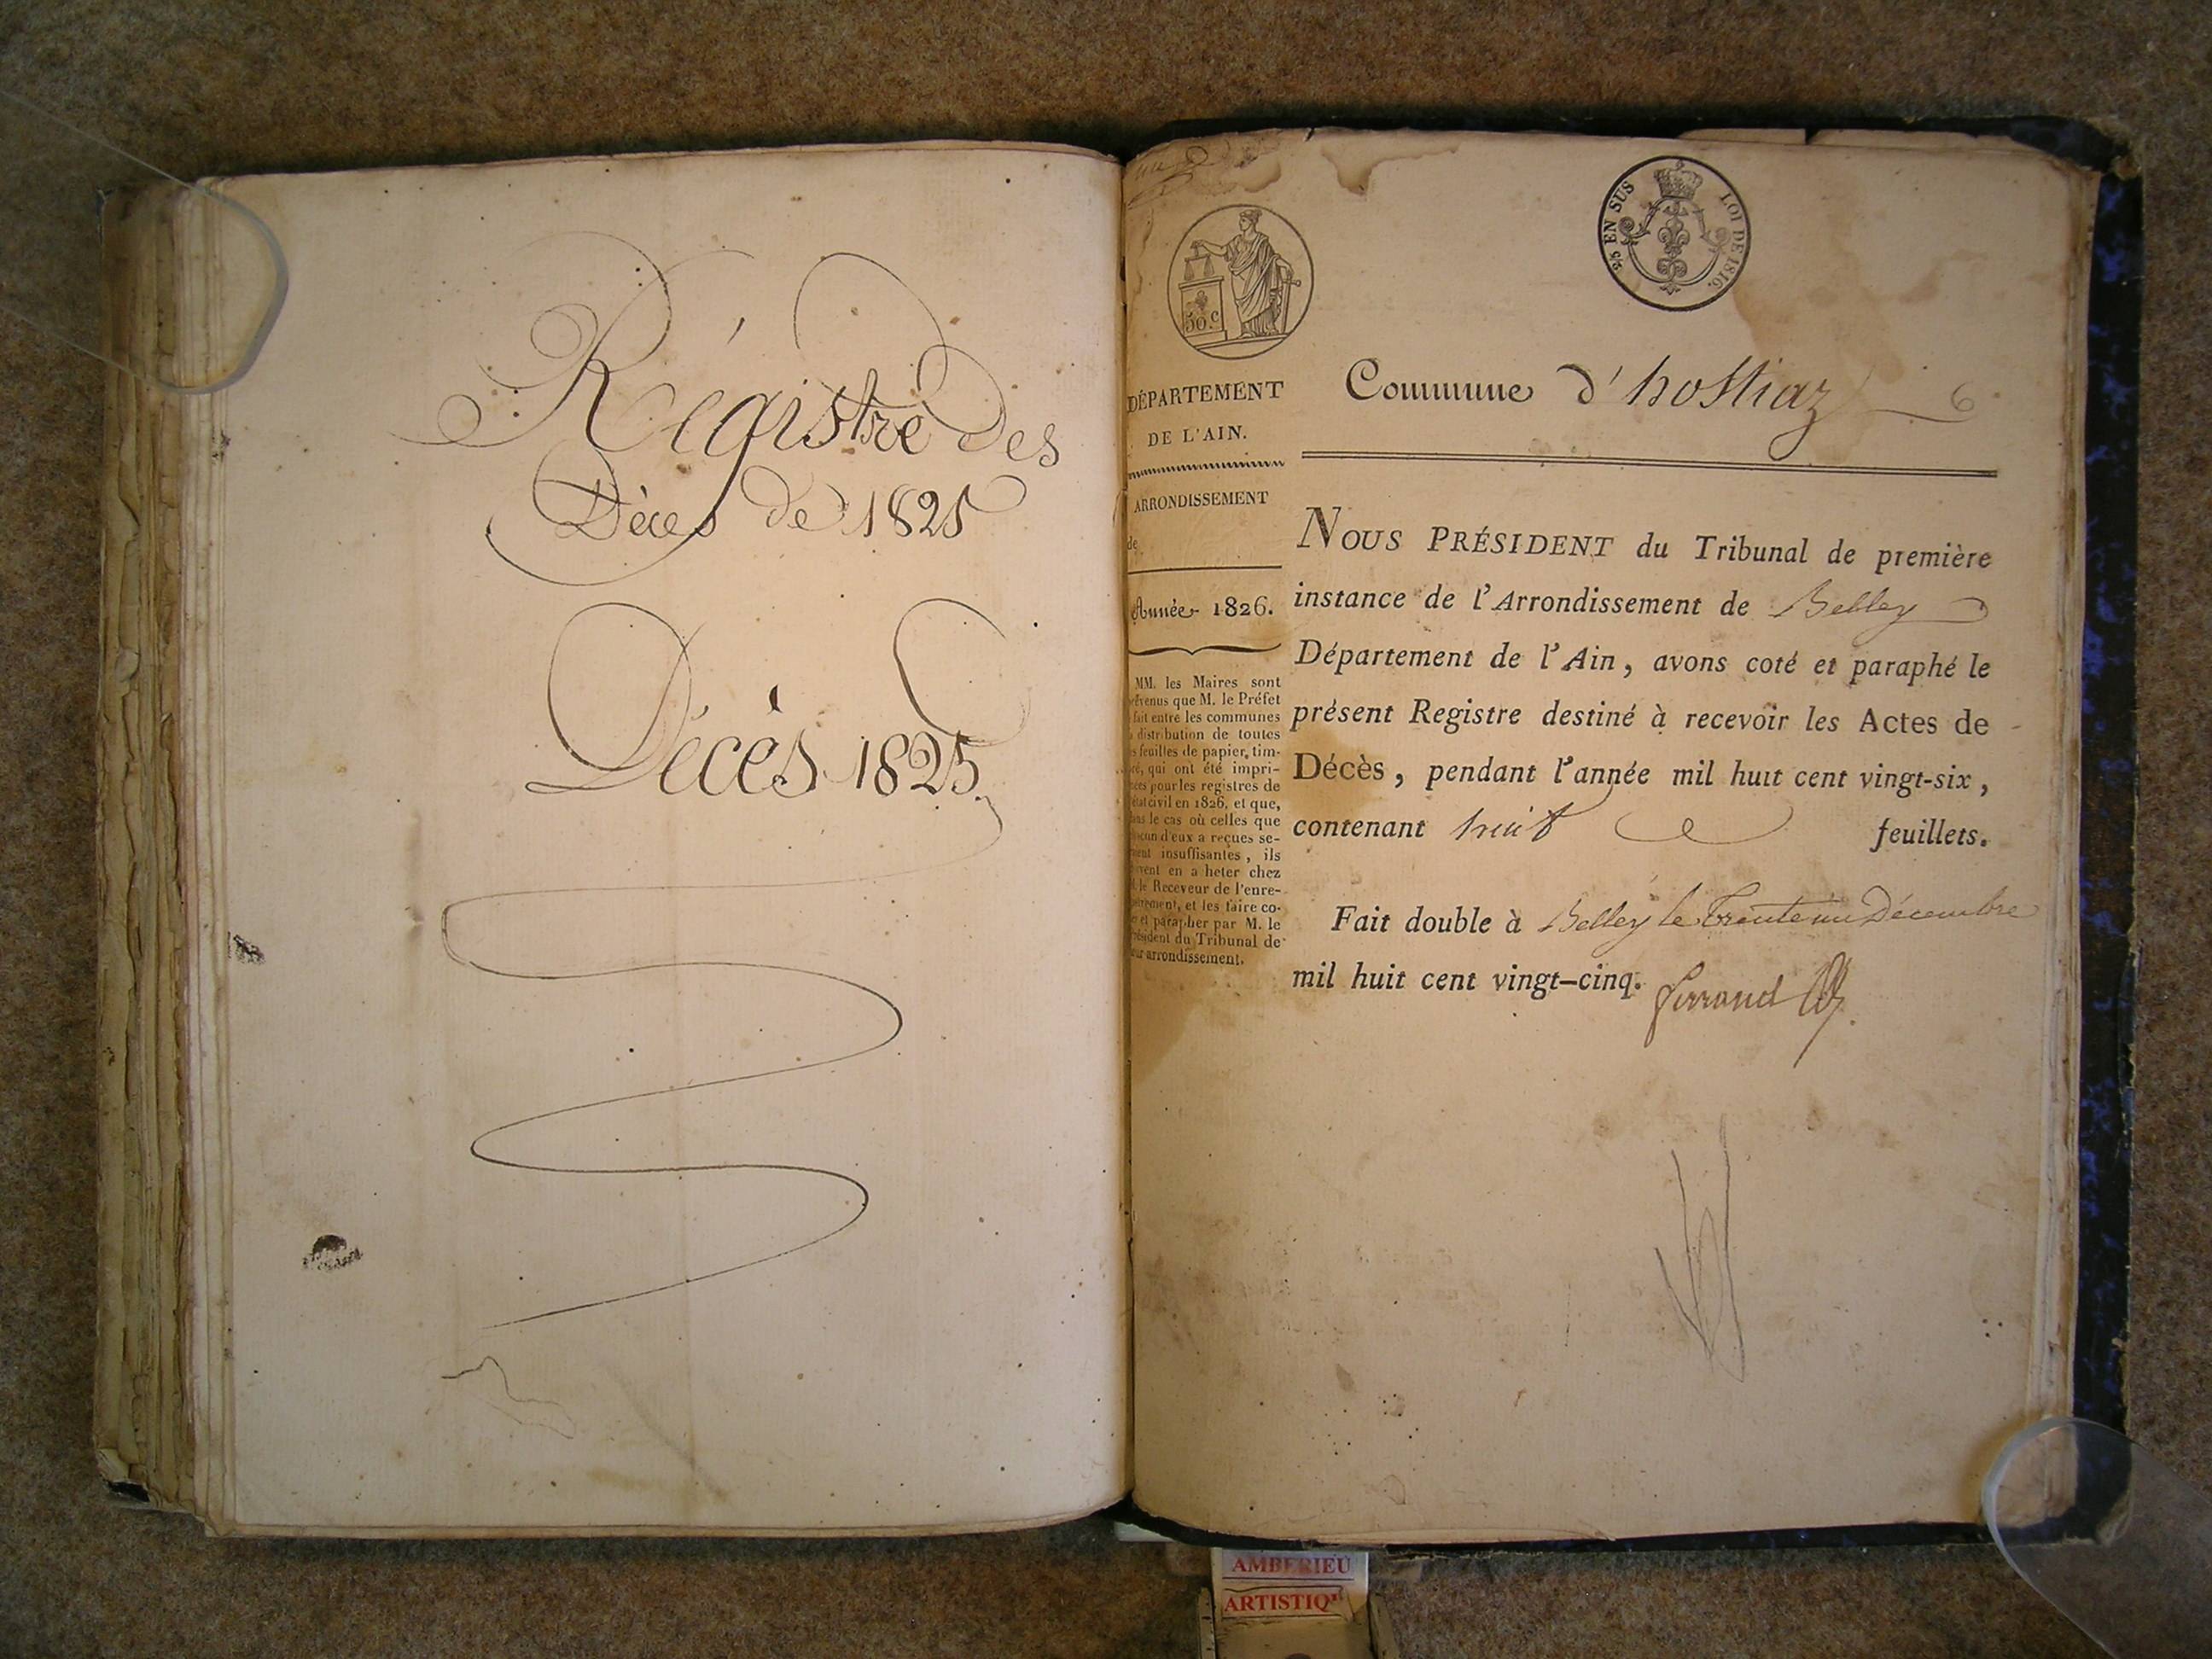 Régistre des
Décès de 1825
Décès 1825
50.c
2/5 EN SUS
LOI DE 1816.
DÉPARTEMENT
DE L'AIN.
ARRONDISSEMENT
de
Année 1826.
MM. les Maires sont
prévenus que M. le Préfet
fait entre les communes
distribution de toutes
feuilles de papier, tim-
qui ont été impri-
pour les registres de
état civil en 1826, et que,
le cas où celles que
d'eux a reçues se-
insuffisantes, ils
en a heter chez
le Receveur de l'enre-
et les faire co-
et parapher par M. le
Président du Tribunal de
arrondissement.
Commune d'hostiaz
6
NOUS PRÉSIDENT du Tribunal de première
instance de l'Arrondissement de Belley
Département de l'Ain, avons coté et paraphé le
présent Registre destiné à recevoir les Actes de
Décès, pendant l'année mil huit cent vingt-six,
contenant huit feuillets.
Fait double à Belley le trente un Décembre
mil huit cent vingt-cinq.
AMBERIEU
ARTISTIQ